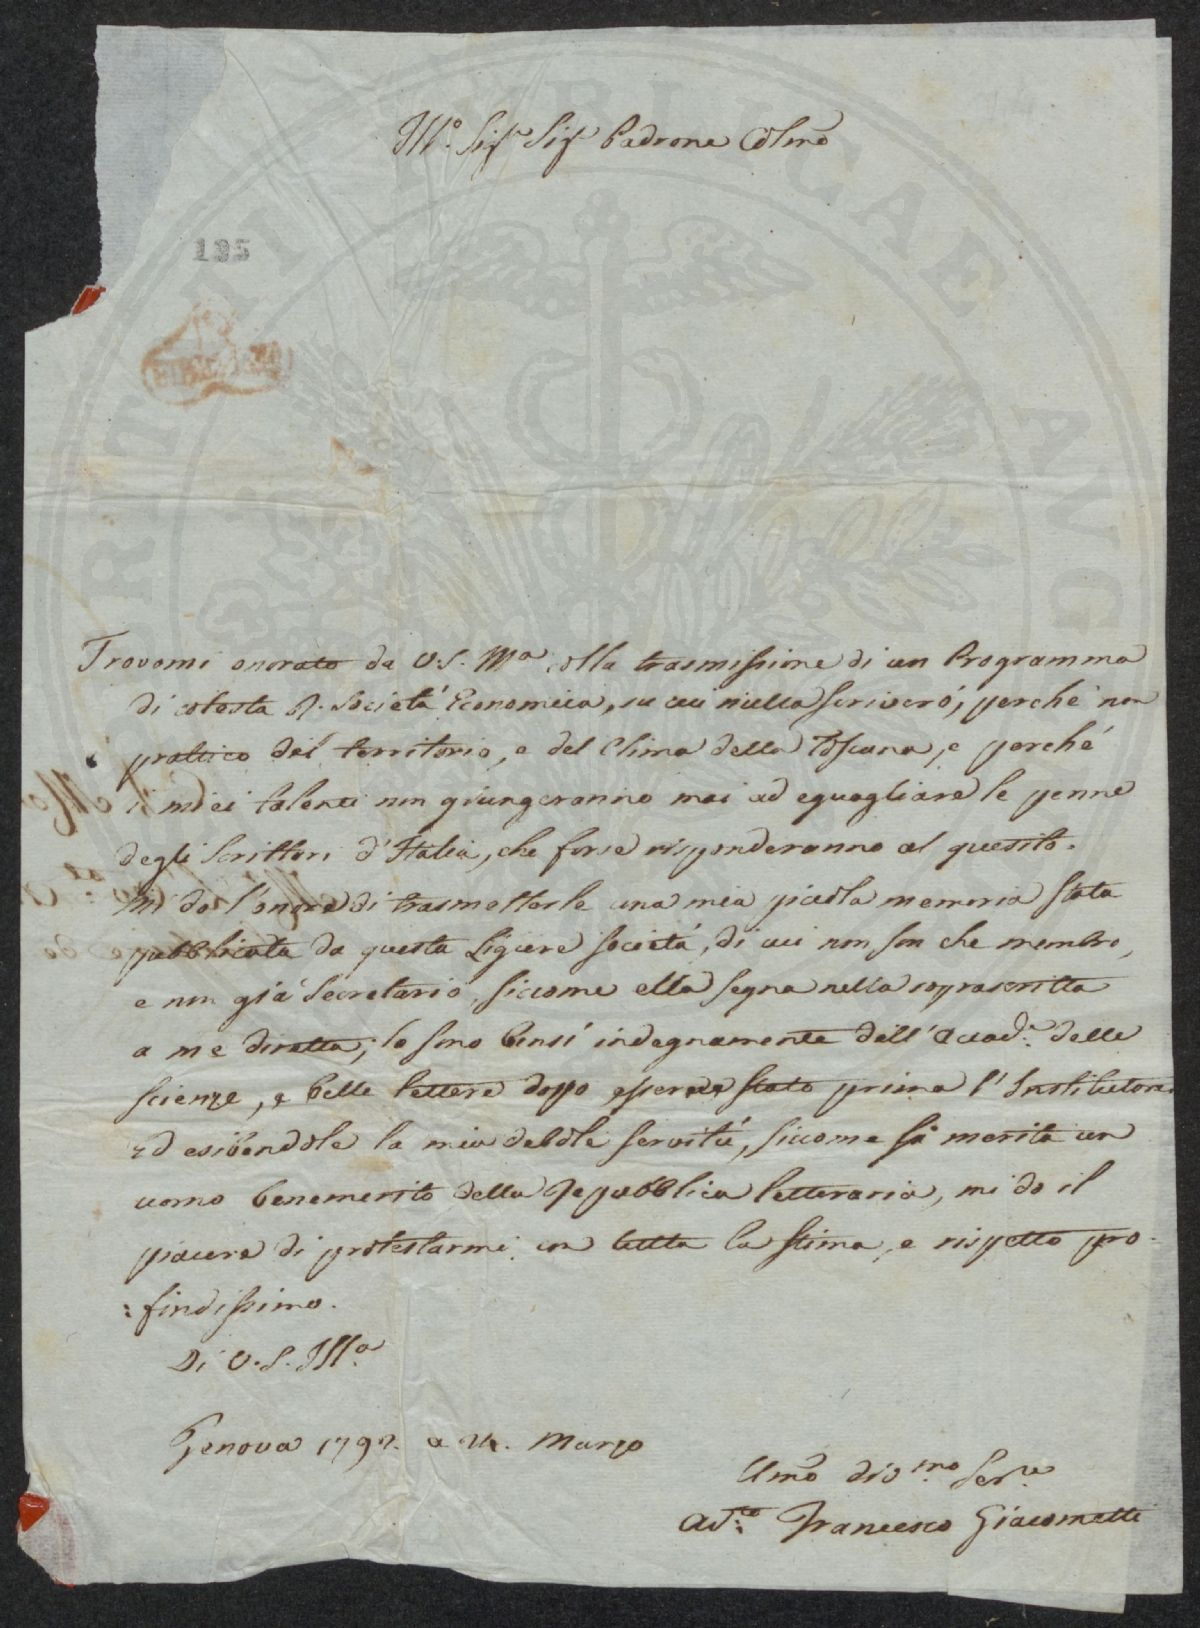 Ill.o Sig.r Sig.r Padrone Colmo
195
Trovomi onorato da V.S. Illa colla trasmissione di un Programma
di cotesta R. Società Economica, su cui nulla scriverò, perchè non
prattico del territorio, e del Clima della Toscana, e perchè
i miei talenti non giungeranno mai ad eguagliare le penne
degli Scrittori d'Italia, che forse risponderanno al quesito.
Mi do l'onore di trasmetterle una mia piccola memoria stata
pubblicata da questa Ligure società, di cui non son che membro,
e non già Secretario, siccome ella segna nella soprascritta
a me diretta; lo sono bensì indegnamente dell'Accad.a delle
scienze, e belle lettere dopo esserne stato prima l'Institutore.
Ed esibendole la mia debole servitù, siccome si merita un
uomo benemerito della Repubblica letteraria, mi do il
piacere di protestarmi con tutta la stima, e rispetto pro-
:fondissimo.
Di V.S. Ill.a
Genova 1792. a 24. Marzo
Umo div.mo Ser.re
Avv.to Francesco Giacometti